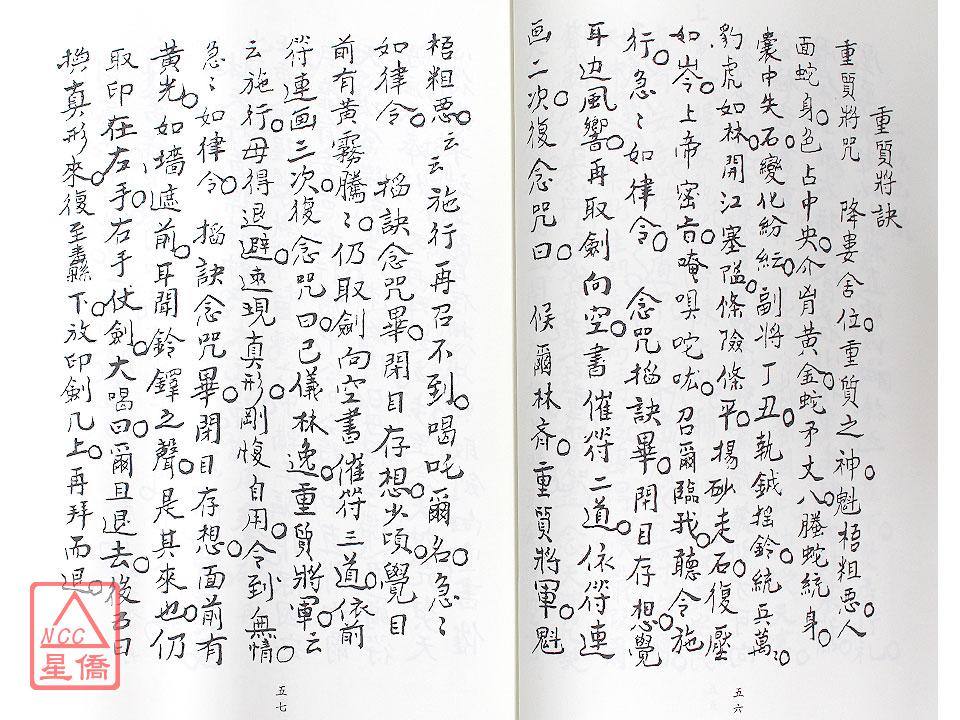 重質將訣
重質將咒　降婁舍位。重質之神。魁梧粗惡。人
面蛇身。色占中央。介胄黃金。蛇矛丈八。螣蛇統身。
囊中失石。變化紛紜。副將丁丑。執鉞搖鈴。統兵萬萬。
豹虎如林。開江塞隘。條險條平。揚砂走石。復壓
如岑。上帝密旨。唵嗅咤吰。召爾臨我。聽令施
行。急急如律令。　念咒搯訣畢。閉目存想。覺
耳边風響。再取劍向空。書催符二道。依符連
画二次。復念咒曰。　候爾林斉。重質將軍。魁
梧粗惡。云云施行。再召不到。喝吒爾名。急急
如律令。　搯訣念咒畢。閉目存想。少頃。覺目
前有黃霧騰騰。仍取劍向空。書催符三道。依前
符連画三次。復念咒曰。已儀林逸。重質將軍。云
云施行。毋得退避。速現真形。剛愎自用。令到無情。
急急如律令。　搯訣念咒畢。閉目存想。面前有
黃光。如墻遮前。耳聞鈴鐸之聲。是其來也。仍
取印在左手。右手仗劍。大喝曰。爾且退去。後五日
換真形來。復至纛下。放印劍几上。再拜而退。
五六
五七
NCC
星僑